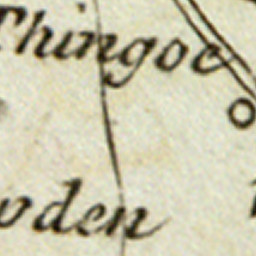 Thingoe
oden